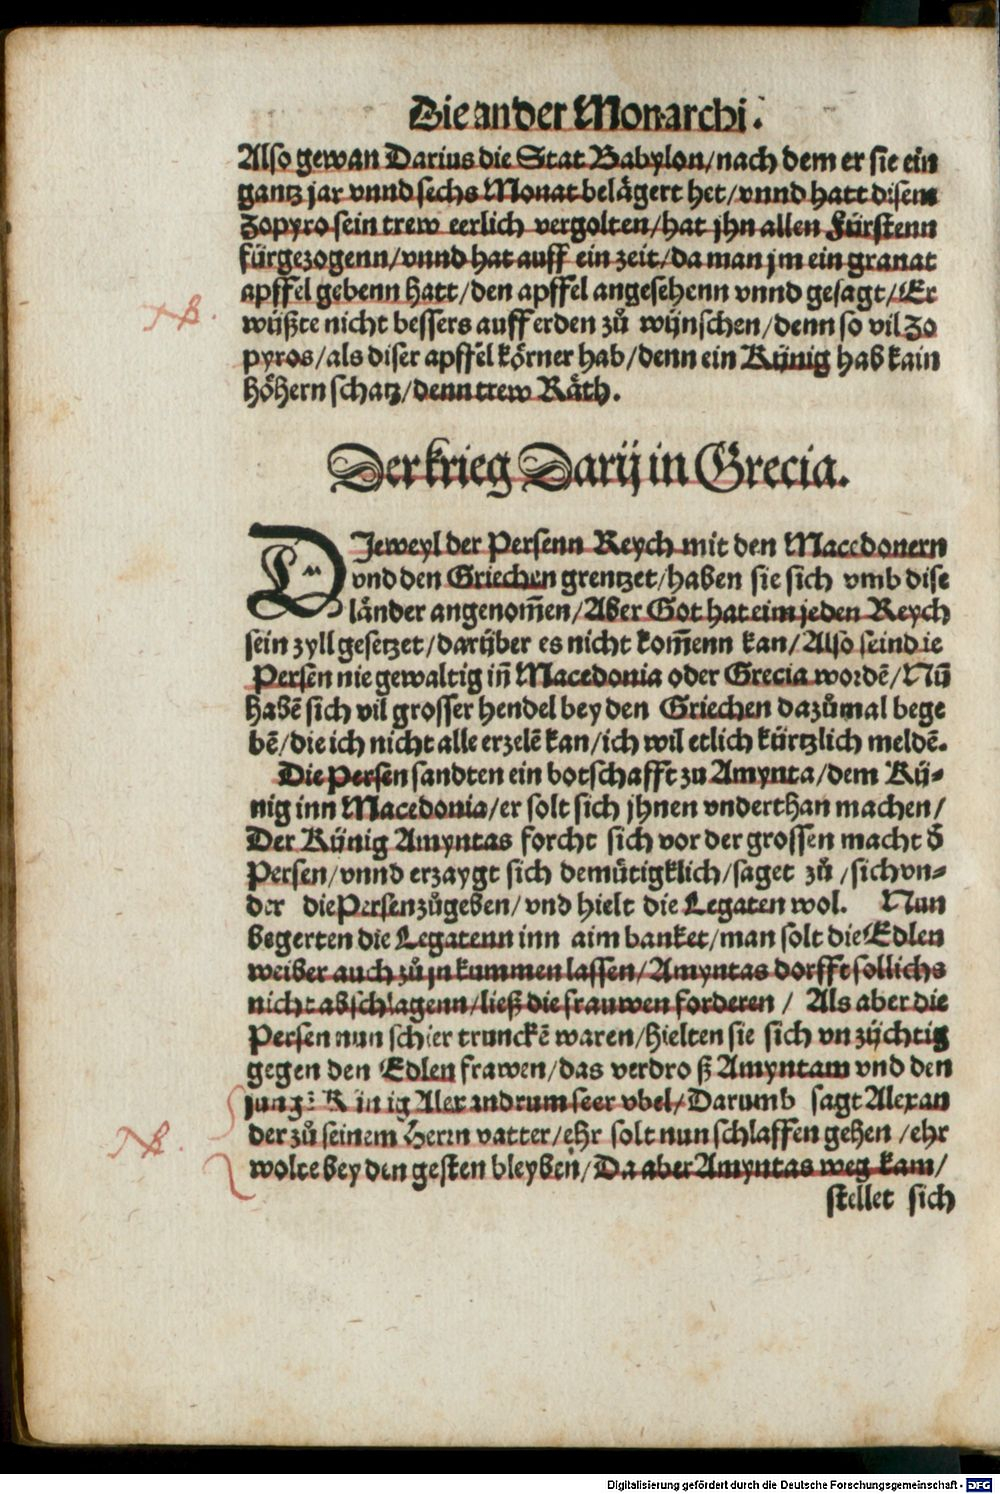 Die ander Monarchi.
Also gewan Darius die Stat Babylon/nach dem er sie ein
gantz jar vnnd sechs Monat belägert het/vnnd hatt disem
Zopyro sein trew eerlich vergolten/hat jhn allen Fürstenn
fürgezogenn/vnnd hat auff ein zeit/da man jm ein granat
apffel gebenn hatt/den apffel angesehenn vnnd gesagt/Er
wüßte nicht bessers auff erden zů wünschen/denn so vil Zo
pyros/als diser apffel körner hab/denn ein Künig hab kain
höhern schatz/denn trew Räth.
NB.
Der krieg Darij in Grecia.
DJeweyl der Persenn Reych mit den Macedonern
vnd den Griechen grentzet/haben sie sich vmb dise
länder angenom̃en/Aber Got hat eim jeden Reych
sein zyll gesetzet/darüber es nicht kom̃enn kan/Also seind ie
Persen nie gewaltig iñ Macedonia oder Grecia wordẽ/Nũ
habẽ sich vil grosser hendel bey den Griechen dazůmal bege
bẽ/die ich nicht alle erzelẽ kan/ich wil etlich kürtzlich meldẽ.
Die Persen sandten ein botschafft zu Amynta/dem Kü-
nig inn Macedonia/er solt sich jhnen vnderthan machen/
Der Künig Amyntas forcht sich vor der grossen macht d̃
Persen/vnnd erzaygt sich demütigklich/saget zů/sich vn-
der die Persen zůgeben/vnd hielt die Legaten wol. Nun
begerten die Legatenn inn aim banket/man solt die Edlen
weiber auch zů jn kummen lassen/Amyntas dorfft sollichs
nicht abschlagenn/ließ die frauwen forderen/ Als aber die
Persen nun schier trunckẽ waren/hielten sie sich vnzüchtig
gegen den Edlen frawen/das verdroß Amyntam vnd den
jung: Künig Alexandrum seer vbel/Darumb sagt Alexan
der zů seinem Herrn vatter/ehr solt nun schlaffen gehen/ehr
wolte bey den gesten bleyben/Da aber Amyntas weg kam/
NB.
stellet sich
Digitalisierung gefördert durch die Deutsche Forschungsgemeinschaft - DFG